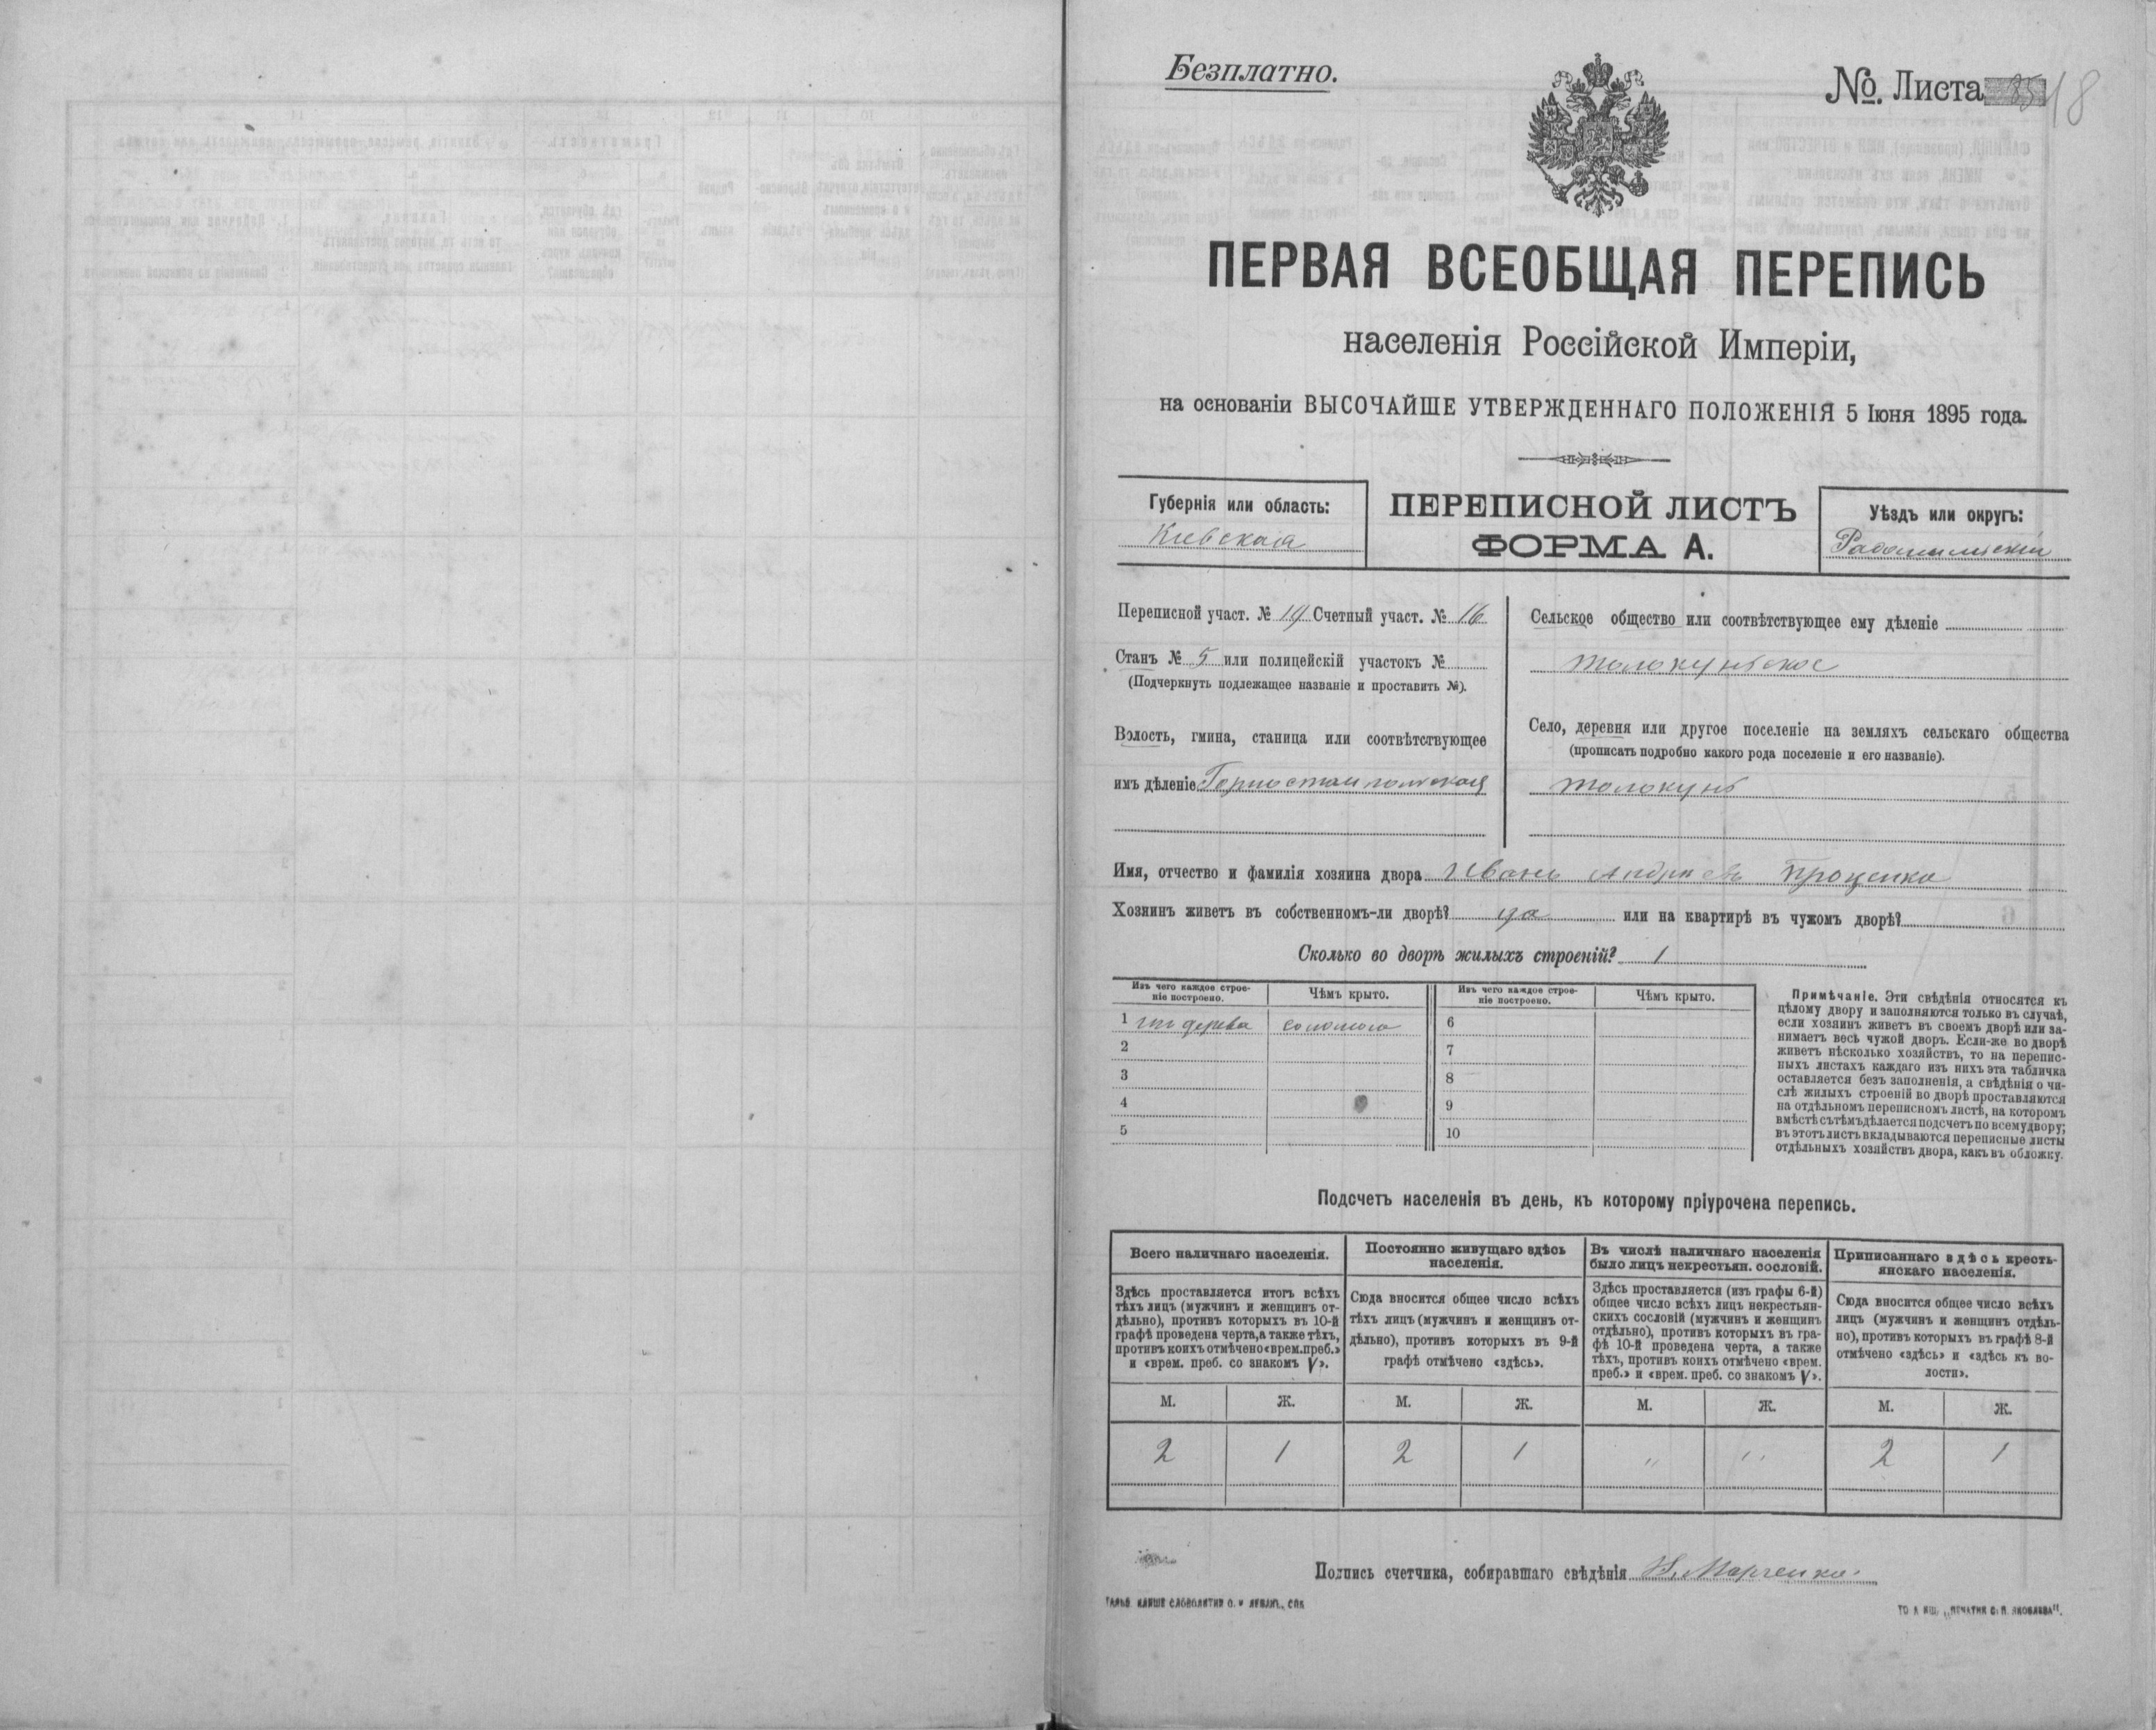 Безплатно.
№ Листа 18
ПЕРВАЯ ВСЕОБЩАЯ ПЕРЕПИСЬ
населенія Россійской Имперіи,
на основаніи ВЫСОЧАЙШЕ УТВЕРЖДЕННАГО ПОЛОЖЕНІЯ 5 Іюня 1895 года.
Губернія или область:
Кіевская
ПЕРЕПИСНОЙ ЛИСТЪ
ФОРМА А.
Уѣздъ или округъ:
Радомысльскій
Переписной участ. № 19 Счетный участ. № 16
Станъ № 5 или полицейскій участокъ №
(Подчеркнуть подлежащее названіе и проставить №).
Волость, гмина, станица или соотвѣтствующее
имъ дѣленіе Горностайпольская
Сельское общество или соотвѣтствующее ему дѣленіе
Толокунское
Село, деревня или другое поселеніе на земляхъ сельскаго общества
(прописать подробно какого рода поселеніе и его названіе).
Толокунь
Имя, отчество и фамилія хозяина двора Иванъ Андреевъ Проценко
Хозяинъ живетъ въ собственномъ-ли дворѣ? да или на квартирѣ въ чужомъ дворѣ?
Сколько во дворѣ жилыхъ строеній? 1
Изъ чего каждое строе-
ніе построено.
Чѣмъ крыто.
Изъ чего каждое строе-
ніе построено.
Чѣмъ крыто.
1 изъ дерева соломою 6
2 7
3 8
4 9
5 10
Примѣчаніе. Эти свѣдѣнія относятся къ
цѣлому двору и заполняются только въ случаѣ,
если хозяинъ живетъ въ своемъ дворѣ или за-
нимаетъ весь чужой дворъ. Если-же во дворѣ
живетъ нѣсколько хозяйствъ, то на перепис-
ныхъ листахъ каждаго изъ нихъ эта табличка
оставляется безъ заполненія, а свѣдѣнія о чи-
слѣ жилыхъ строеній во дворѣ проставляются
на отдѣльномъ переписномъ листѣ, на которомъ
вмѣстѣ съ тѣмъ дѣлается подсчетъ по всему двору;
въ этотъ листъ вкладываются переписные листы
отдѣльныхъ хозяйствъ двора, какъ въ обложку.
Подсчетъ населенія въ день, къ которому пріурочена перепись.
Всего наличнаго населенія.
Здѣсь проставляется итогъ всѣхъ
тѣхъ лицъ (мужчинъ и женщинъ от-
дѣльно), противъ которыхъ въ 10-й
графѣ проведена черта, а также тѣхъ,
противъ коихъ отмѣчено «врем. преб.»
и «врем. преб. со знакомъ V».
Постоянно живущаго здѣсь
населенія.
Сюда вносится общее число всѣхъ
тѣхъ лицъ (мужчинъ и женщинъ от-
дѣльно), противъ которыхъ въ 9-й
графѣ отмѣчено «здѣсь».
Въ числѣ наличнаго населенія
было лицъ некрестьян. сословій.
Здѣсь проставляется (изъ графы 6-й)
общее число всѣхъ лицъ некрестьян-
скихъ сословій (мужчинъ и женщинъ
отдѣльно), противъ которыхъ въ гра-
фѣ 10-й проведена черта, а также
тѣхъ, противъ коихъ отмѣчено «врем.
преб.» и «врем. преб. со знакомъ V».
Приписаннаго здѣсь кресть-
янскаго населенія.
Сюда вносится общее число всѣхъ
лицъ (мужчинъ и женщинъ отдѣль-
но), противъ которыхъ въ графѣ 8-й
отмѣчено «здѣсь» и «здѣсь къ во-
лости».
М. Ж. М. Ж. М. Ж. М. Ж.
2 1 2 1 " " 2 1
Подпись счетчика, собиравшаго свѣдѣнія Марченко